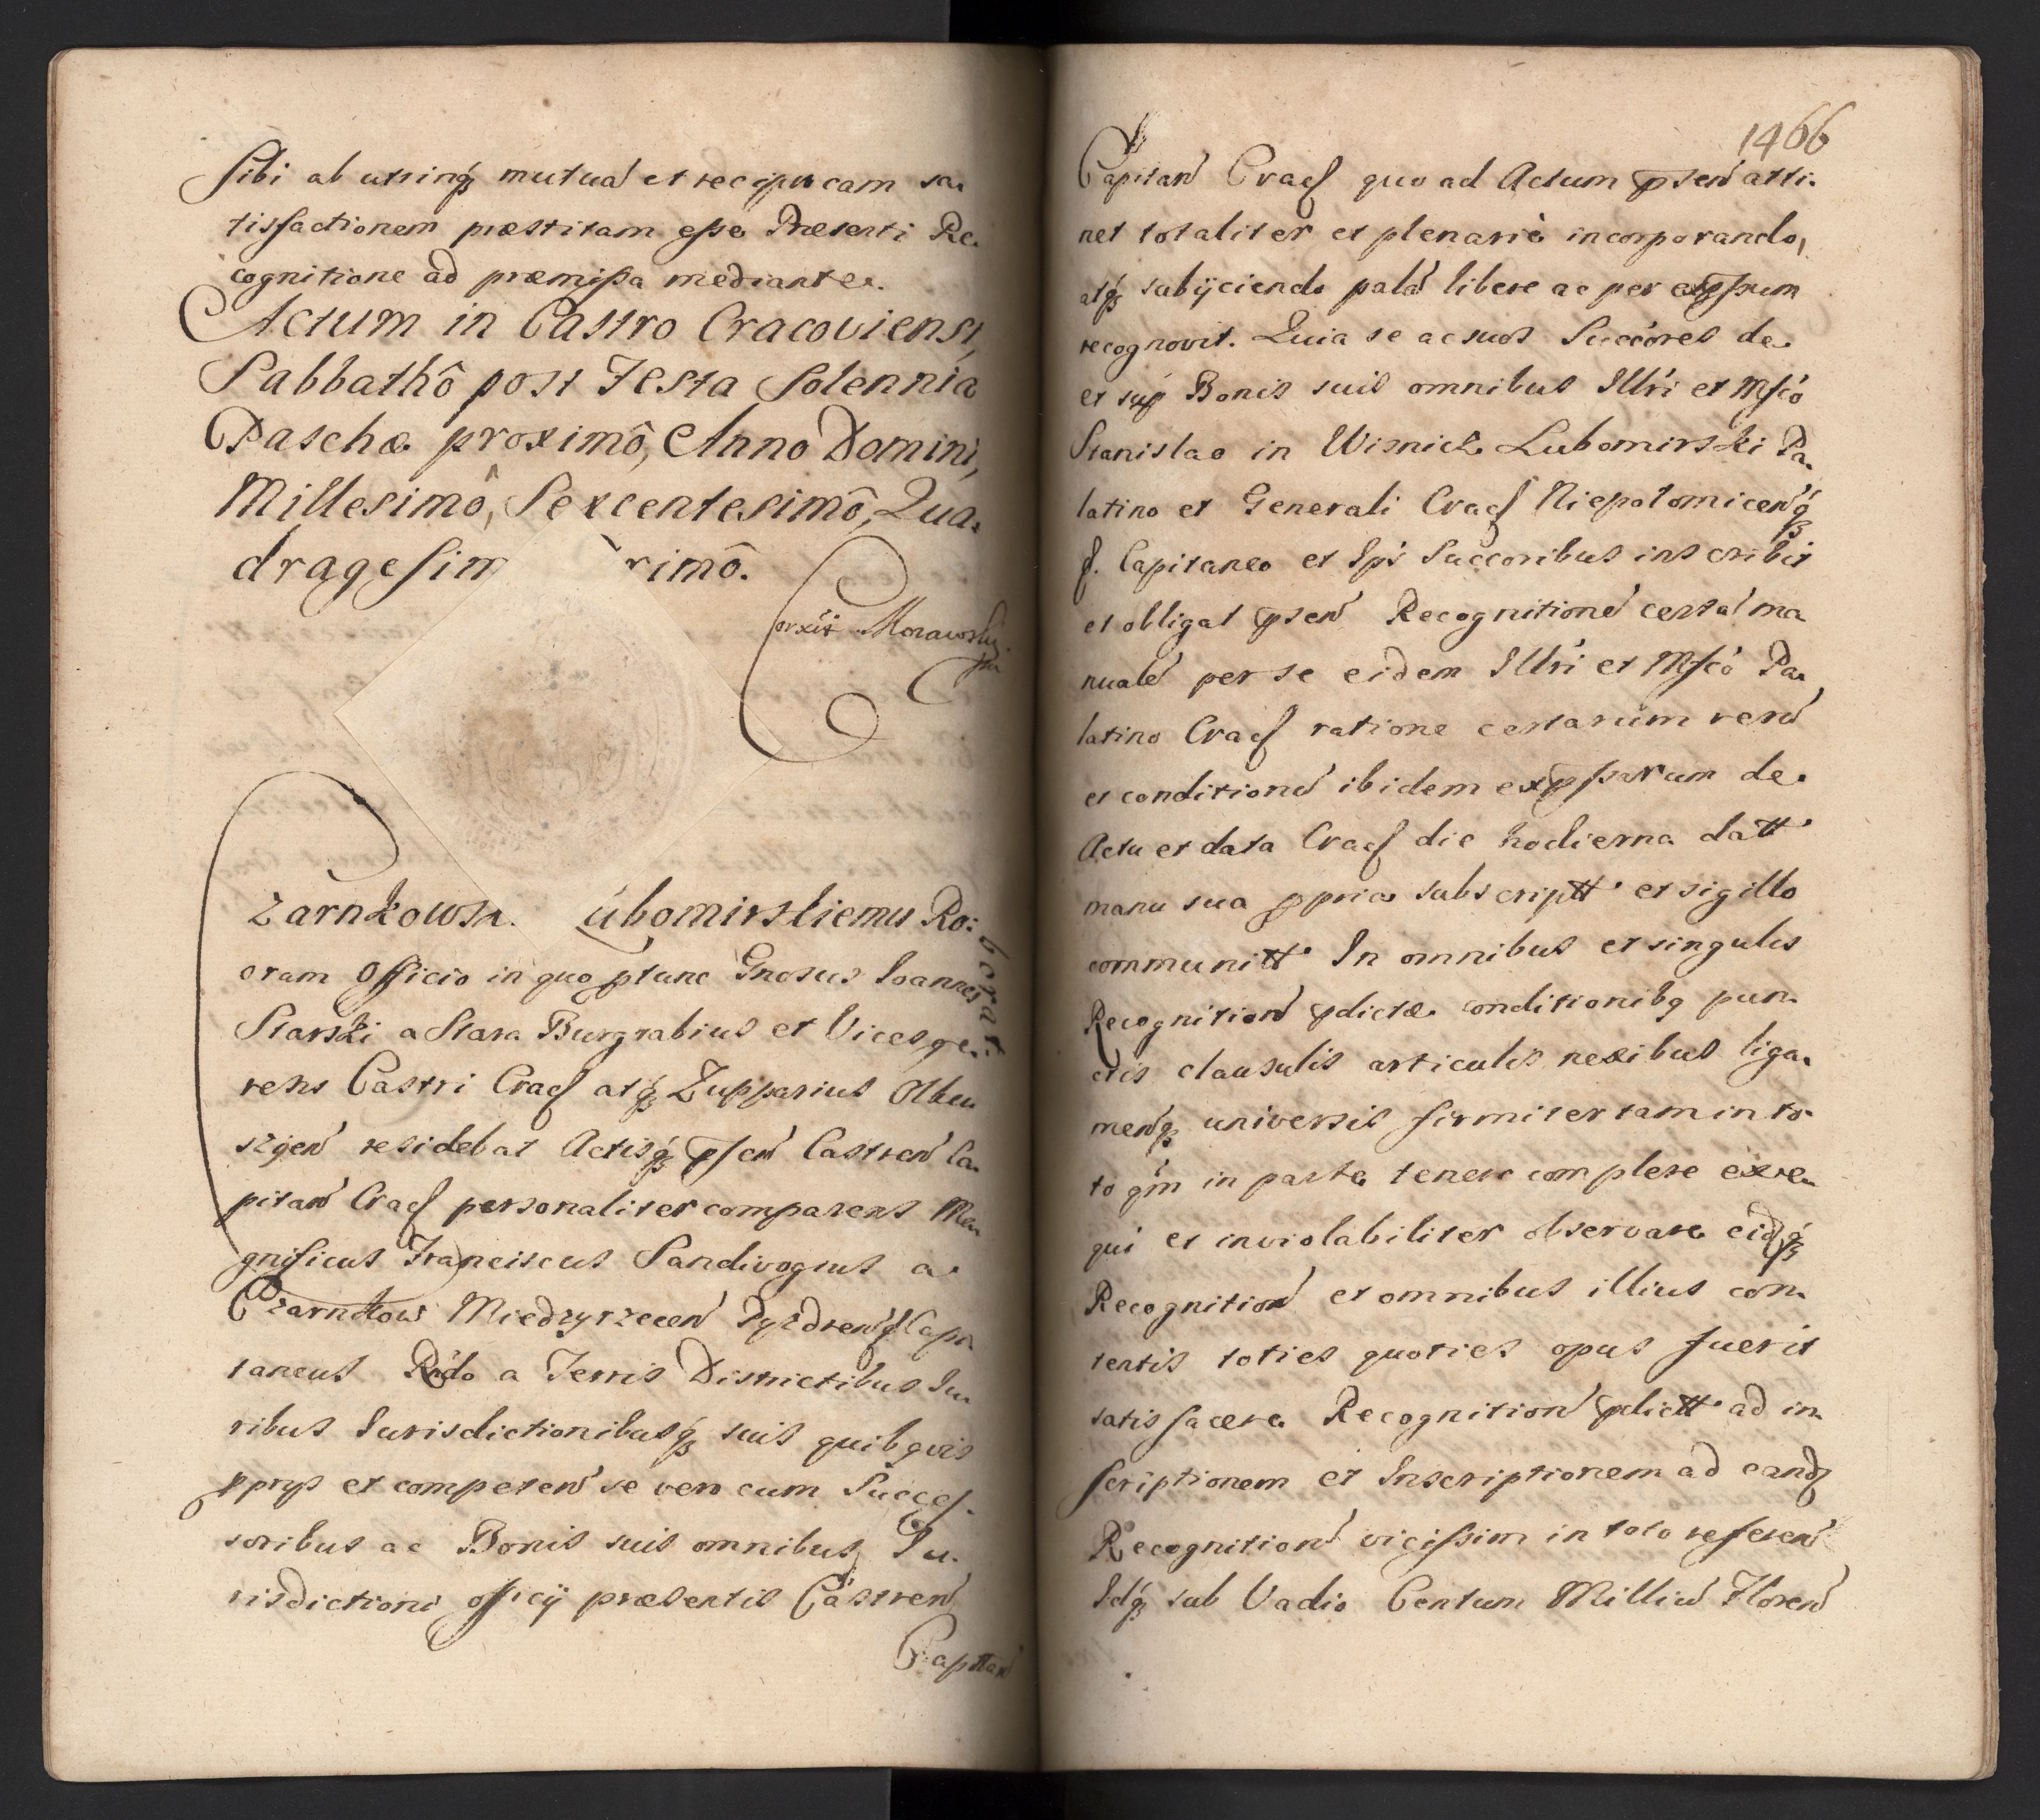 Sibi ab utrinq₃ mutuā et reciprocam sa-
tisfactionem præstitam esse Præsenti Re-
cognitione ad præmissa mediante.
Actum in Castro Cracoviensi,
Sabbathô post Festa Solennia
Paschæ proximô, Anno Domini,
Millesimô, Sexcentesimô, Qua-
dragesim rimô.
Morawski
zarnkowsk ubomirskiemu Ro:
borat
oram Officio in quo ptunc Gnosus Ioannes
Starski a Stara Burgrabius et Vicesge-
rens Castri Crac atq₃ Zupparius Olku
szgeń residebat Actisq₃ psen Castreń Ca-
pitań Crac personaliter comparens Ma-
gnificus Franciscus Sandivogius a
Czarnkow Miedzyrzeceń Pyzdreń Capi-
taneus Rćdo a Terris Districtibus Iu-
ribus Iurisdictionibusq₃ suis quibqvis
pprys et competeń se vero cum Succes-
soribus ac Bonis suis omnibus Iu-
risdictioni officÿ præsentis Castreń
Capitań
1466
Capitań Crac quo ad Actum pseń atti-
net totaliter et plenariè incorporando,
atq₃ subÿciendo palā libere ac per expssum
recognovit. Quia se ac suos Succóres de
et sup Bonis suis omnibus Illri et Mfcó
Stanislao in Wisnicz Lubomirski Pa-
latino et Generali Crac Niepolomiceńq₃
Capitaneo et Ips Succoribus inscribit
et obligat pseń Recognitionē certā ma
nualē per se eidem Illri et Mfcó Pa-
latino Crac ratione certarum reru
et conditionū ibidem expssarum de
Actu et data Crac die hodierna datt
manu sua ppria subscriptt et sigillo
communitt In omnibus et singulis
Recognitioń pdictæ conditionibq pun-
ctis clausulis articulis nexibus liga-
menq₃ universis firmiter tam in to-
to qm in parte tenere complere exe-
qui et inviolabiliter observare eidq₃
Recognitioń et omnibus illius con-
tentis toties quoties opus fuerit
satisfacere Recognitioń pdictt ad in-
scriptionem et Inscriptionem ad eand
Recognitioń vicissim in toto refereń
Idq₃ sub Vadio Centum Milliū Floreń